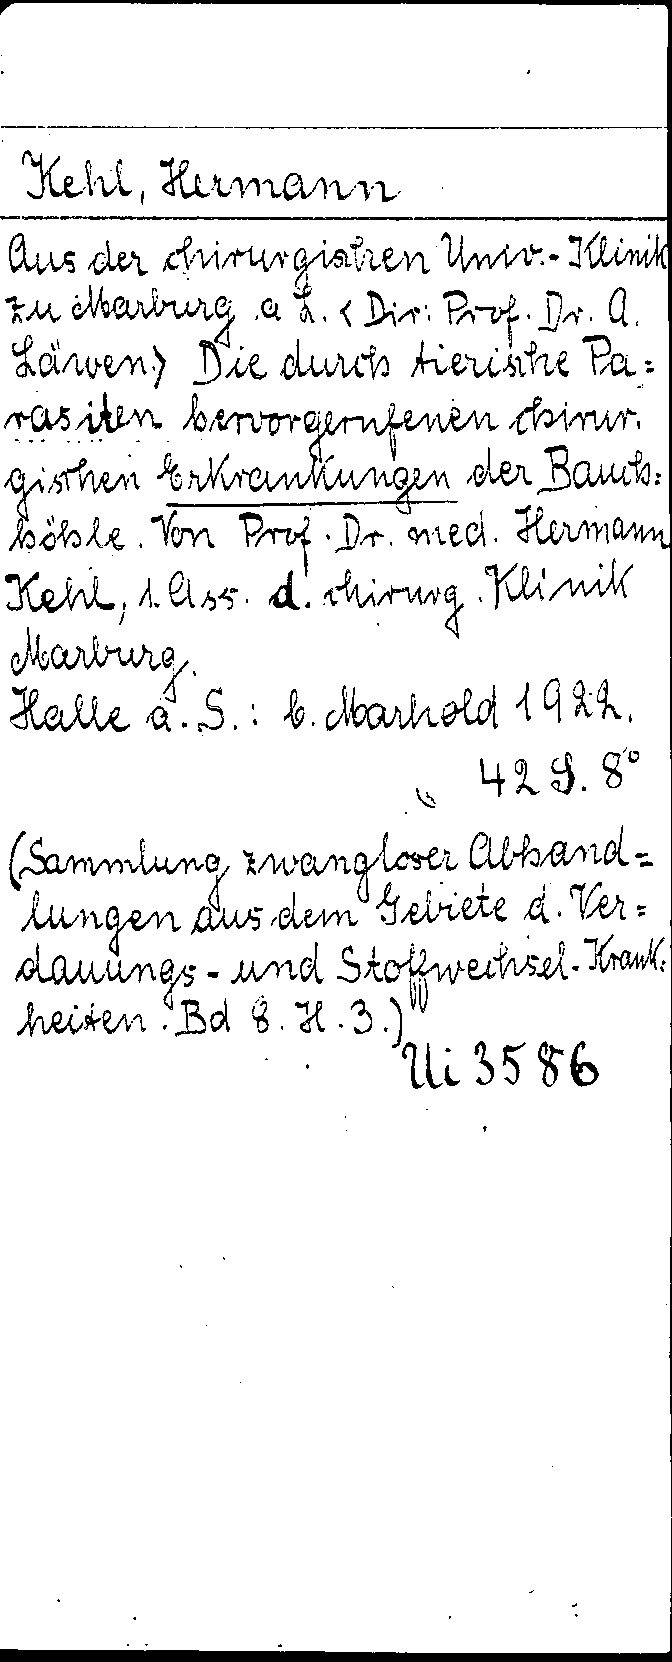 Kehl, Hermann
Aus der chirurgischen Univ.-Klinik
zu Marburg a L. < Dir: Prof. Dr. A.
Läwen> Die durch tierische Pa=
rasiten hervorgerufenen chirur.
gischen Erkrankungen der Bauch=
höhle. Von Prof. Dr. med. Hermann
Kehl, 1. Ass. d. chirurg. Klinik
Marburg.
Halle a. S.: C. Marhold 1922.
42 S. 8°
(Sammlung zwangloser Abhand=
lungen aus dem Gebiete d. Ver=
dauungs- und Stoffwechsel-Krank=
heiten. Bd 8. H. 3.)
Ui 3586